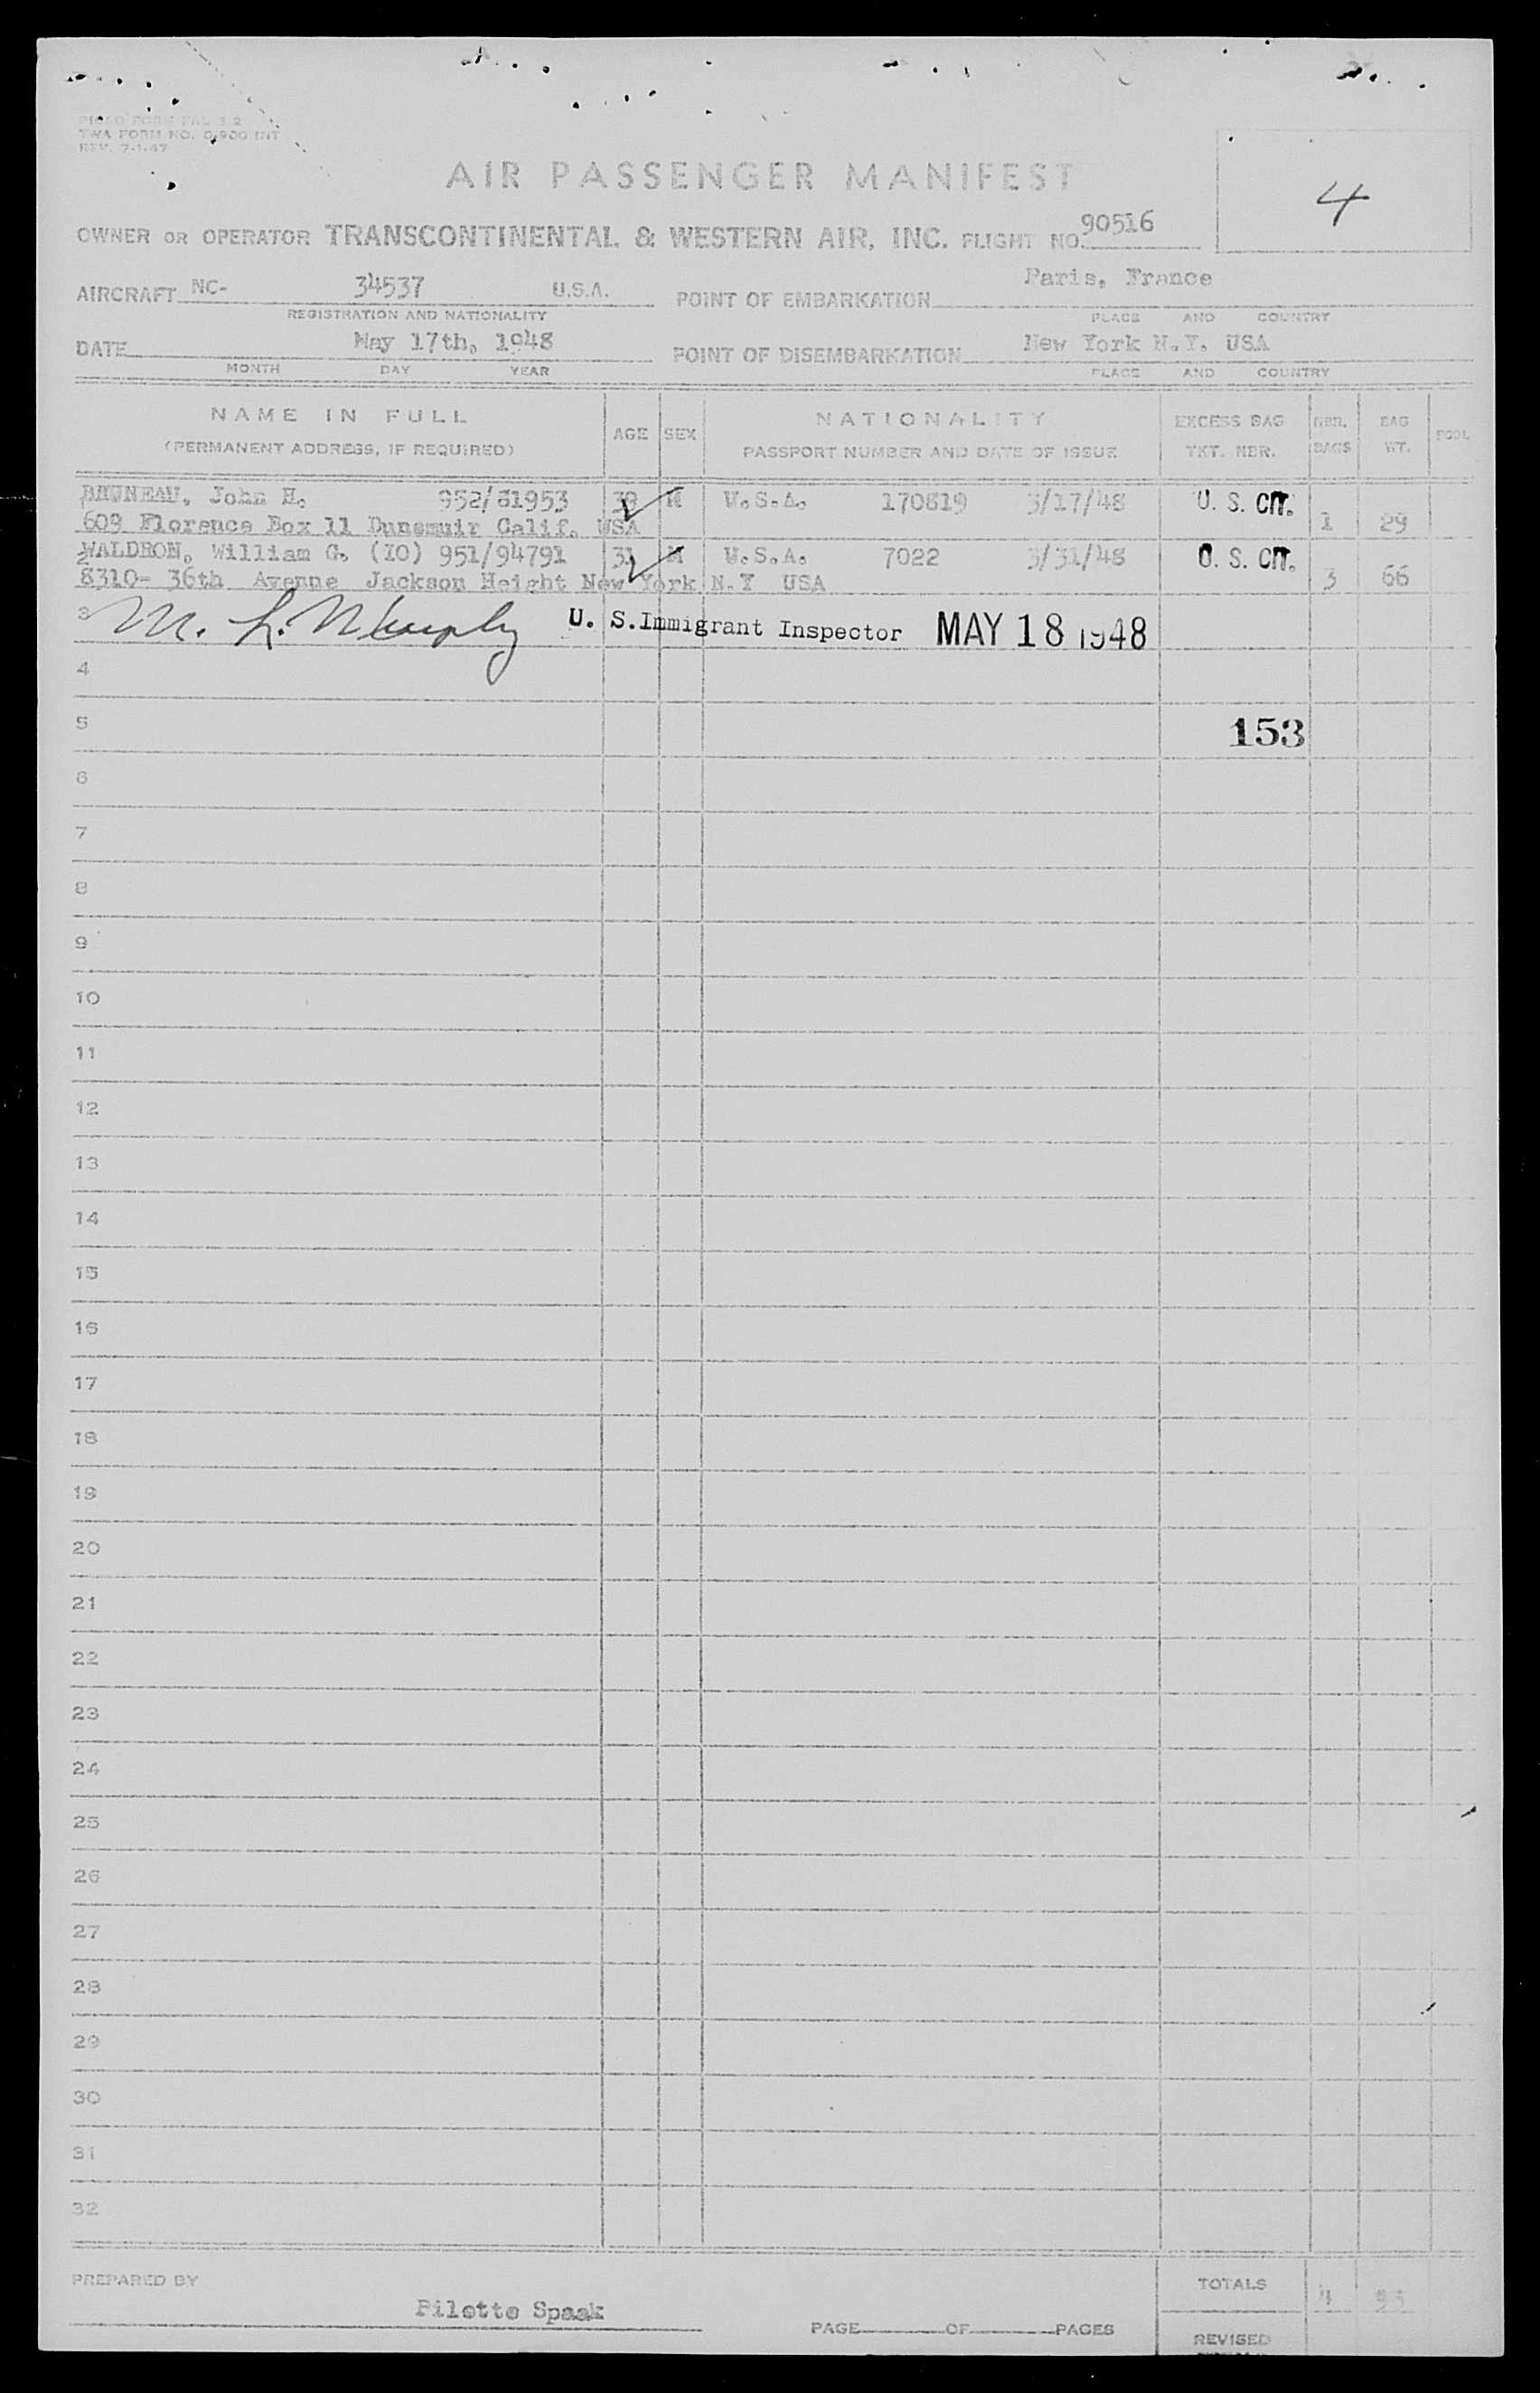 PICAO FORM PAL 3.2
TWA FORM NO. O-900 INT
REV. 7-1-47
AIR PASSENGER MANIFEST
4
OWNER OR OPERATOR TRANSCONTINENTAL & WESTERN AIR, INC. FLIGHT NO. 90516
AIRCRAFT NC- 34537 U.S.A. POINT OF EMBARKATION Paris, France
REGISTRATION AND NATIONALITY PLACE AND COUNTRY
DATE May 17th, 1948 POINT OF DISEMBARKATION New York N.Y. USA
MONTH DAY YEAR PLACE AND COUNTRY
NAME IN FULL (PERMANENT ADDRESS, IF REQUIRED) AGE SEX NATIONALITY PASSPORT NUMBER AND DATE OF ISSUE EXCESS BAG TKT. NBR. NBR. BAGS BAG WT. POOL
BRUNEAU, John H. 952/81953 38 M U.S.A. 170819 3/17/48 U. S. CIT.
609 Florence Box 11 Dunsmuir Calif. USA 1 29
2 WALDRON, William G. (IO) 951/94791 31 M U.S.A. 7022 3/31/48 U. S. CIT.
8310- 36th Avenue Jackson Height New York N.Y USA 3 66
3 M. L. Murphy U. S. Immigrant Inspector MAY 18 1948
4
5 153
6
7
8
9
10
11
12
13
14
15
16
17
18
19
20
21
22
23
24
25
26
27
28
29
30
31
32
PREPARED BY Pilette Spaak
PAGE OF PAGES
TOTALS 4
REVISED